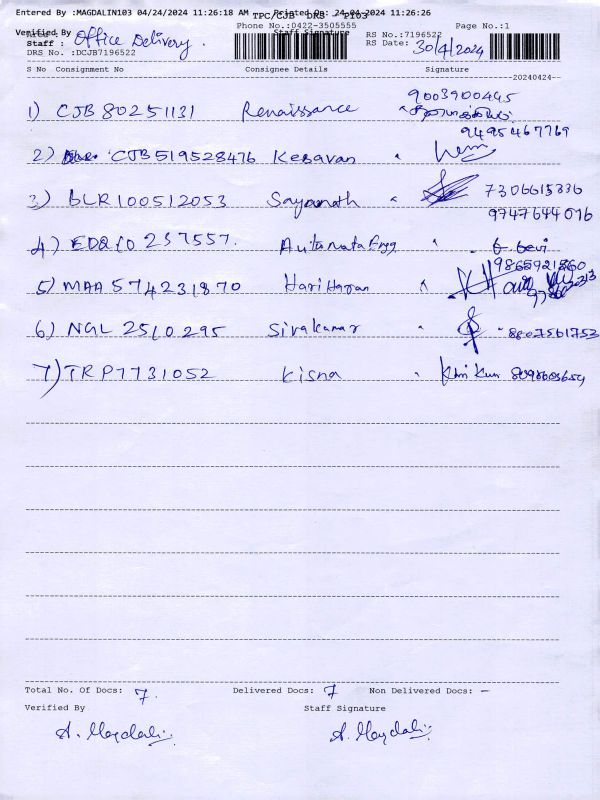 Entered By :MAGDALIN103 04/24/2024 11:26:18 AM TPC/CJB DRS - P103 Printed On: 24-04-2024 11:26:26
Verified By Phone No.:0422-3505555 Page No.:1
Staff : Office Delivery. Staff Signature RS No.:7196522
DRS No. :DCJB7196522 RS Date: 30/4/2024
S No Consignment No Consignee Details Signature
20240424
9003900445
1) CJB 80251131 Renaissance
9495467769
2) CJB519528476 Kesavan
3) BLR100512053 Sayanath 7306615336
9747644076
4) 237557. Automata Engg
9865921860
5) MAA 574231870 Hari Haran
6) NGL 2510295 Sivakumar 8807561753
7) TRP7731052 Kisna
Total No. Of Docs: 7. Delivered Docs: 7 Non Delivered Docs: –
Verified By Staff Signature
A. Magdali A. Magdali